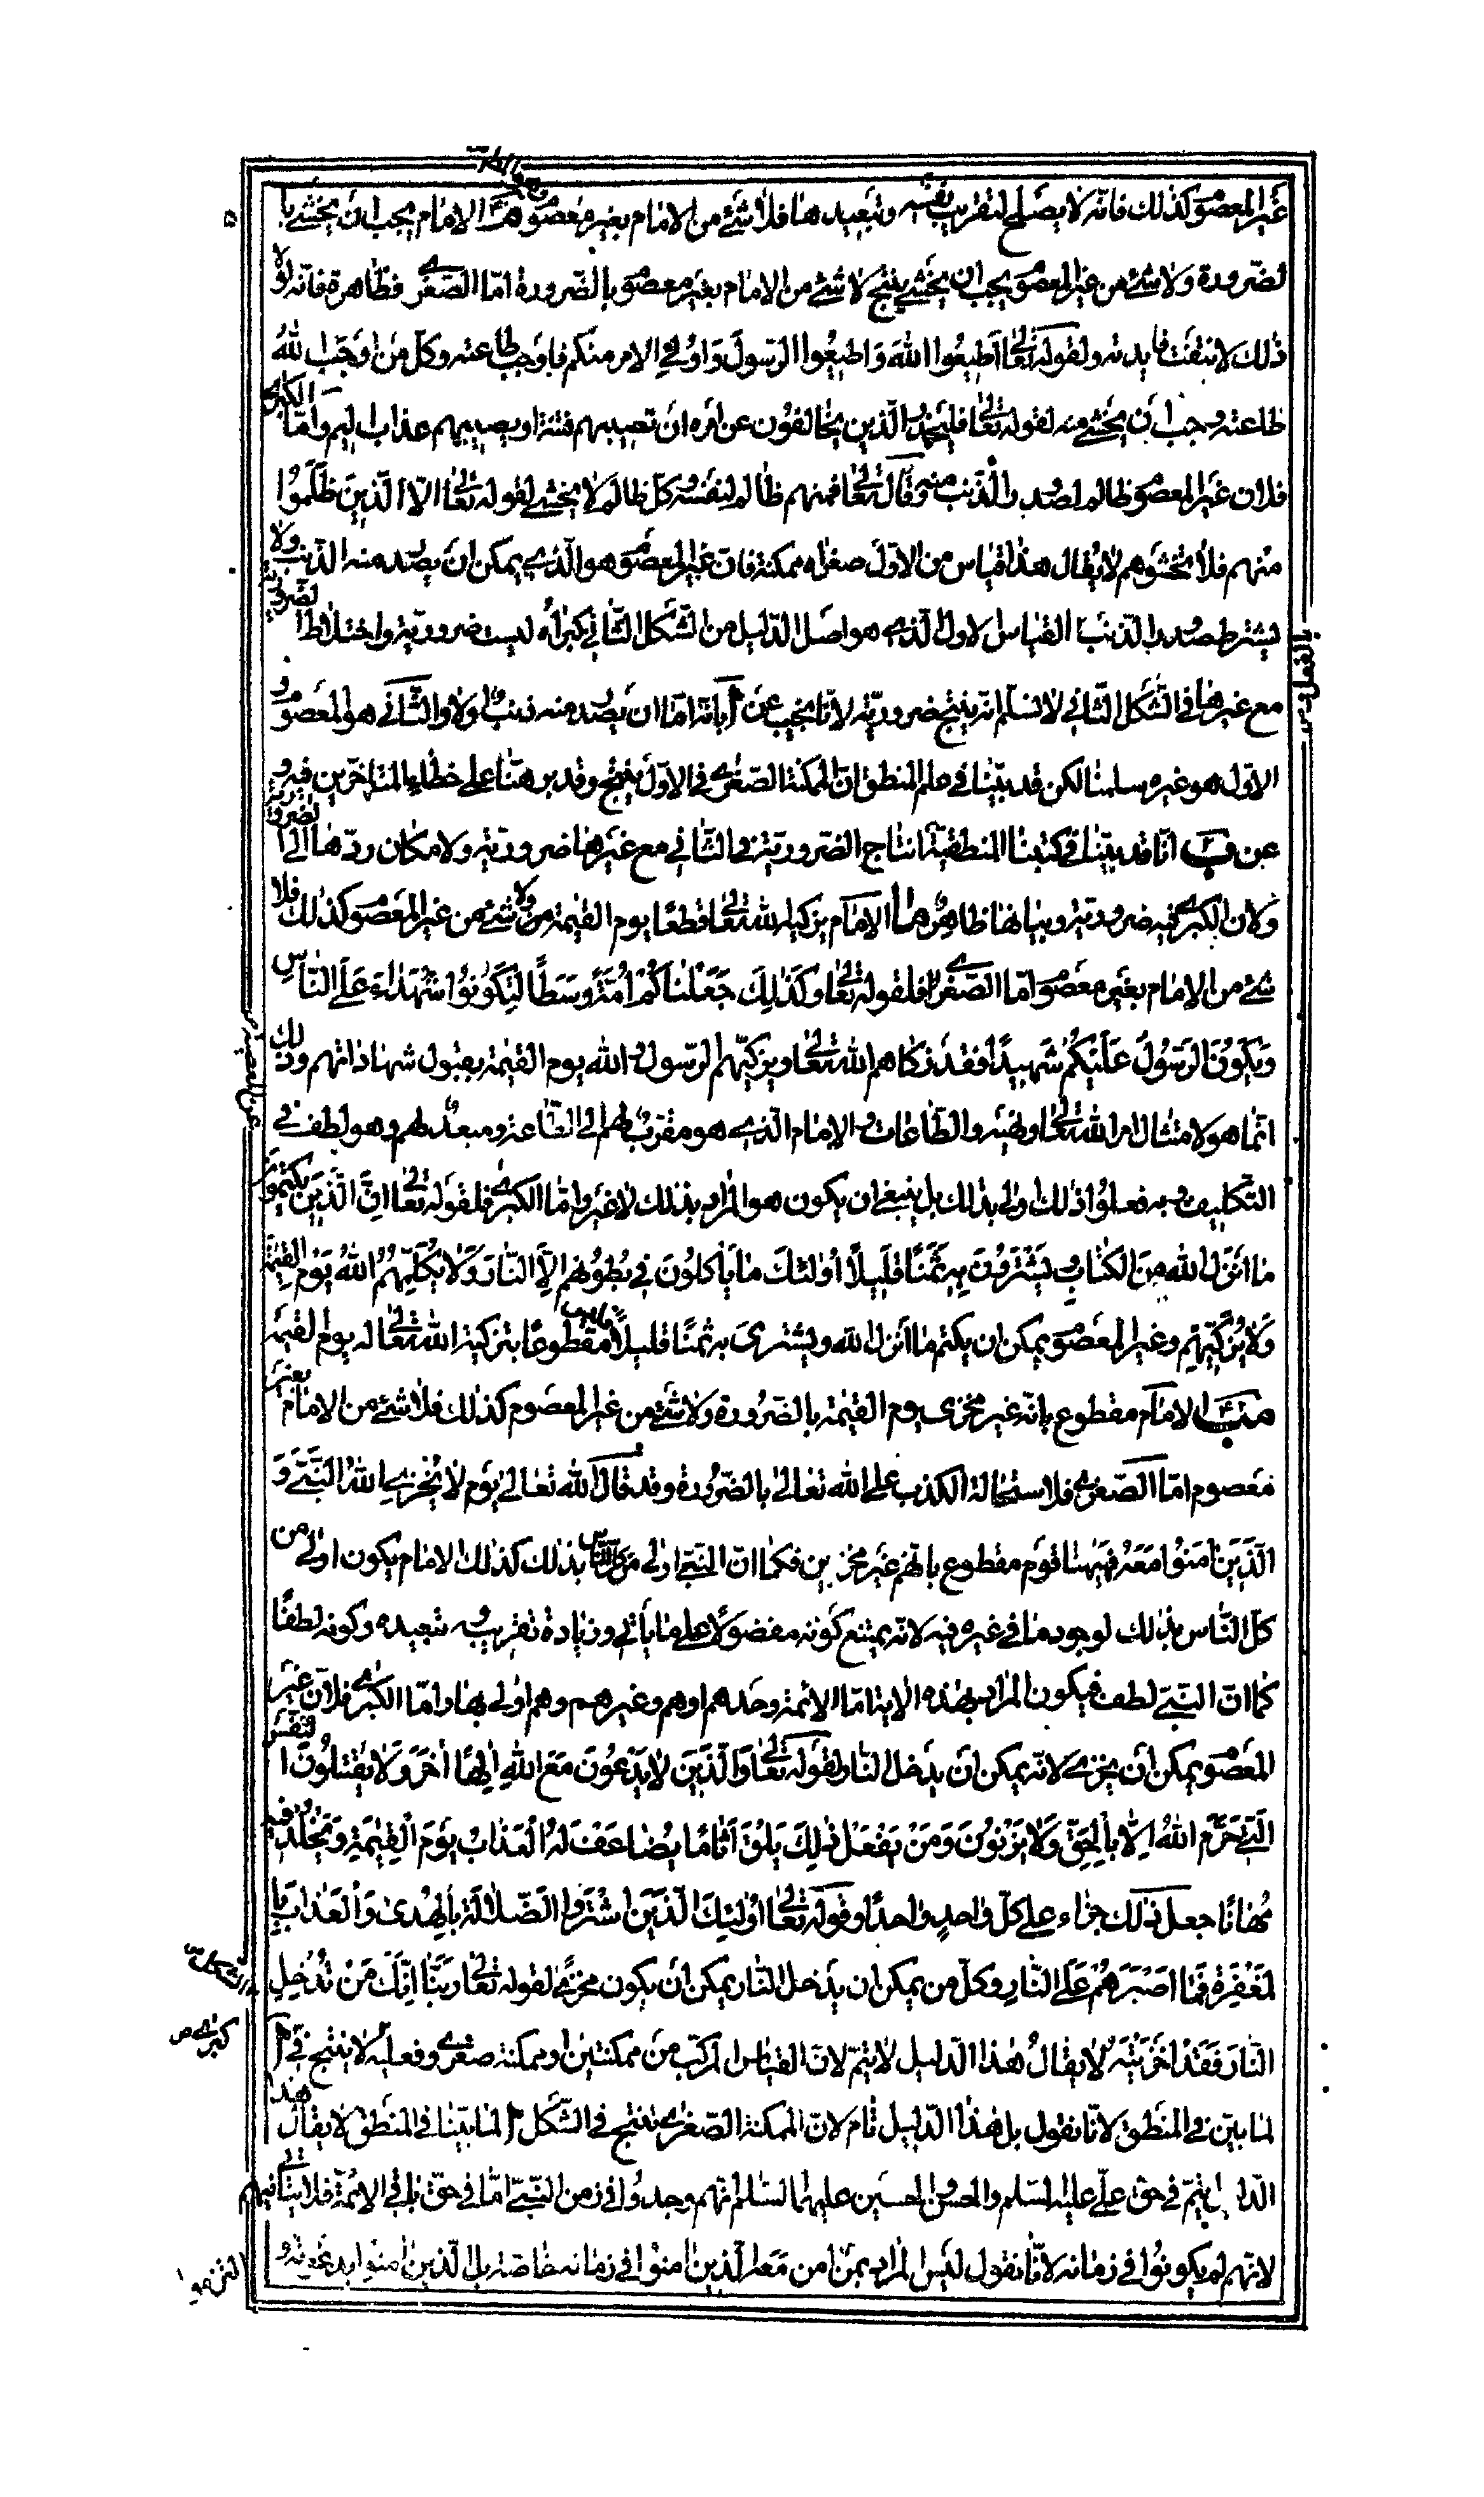 غير المعصوم كذلك فانه لا يصلح لتقريب نفسه وتبعيدها فلا شئ من الامام بغير معصوم الامام يجب ان يخشى با
لضرورة ولا شئ من غير المعصوم يجب ان يخشى ينتج لا شئ من الامام بغير معصوم بالضرورة اما الصغرى فظاهرة فانه لولا
ذلك لانتفت فايدته ولقوله تعالى اطيعوا الله واطيعوا الرسول واولي الامر منكم فاوجب طاعته وكل من اوجب الله
طاعته وجب ان يخشى منه لقوله تعالى فليحذر الذين يخالفون عن امره ان تصيبهم فتنة او يصيبهم عذاب اليم واما الكبرى
فلان غير المعصوم ظالم لصدور الذنب منه وقال تعالى فمنهم ظالم لنفسه وكل ظالم لا يخشى لقوله تعالى الا الذين ظلموا
منهم فلا تخشوهم لا يقال هذا قياس من الاول صغراه ممكنة فان غير المعصوم هو الذي يمكن ان يصدر منه الذنب ولا
يشترط صدور الذنب بالفعل القياس الاول الذي هو اصل الدليل من الشكل الثاني كبراه ليست ضرورية واختلاط الضرورية
مع غيرها في الشكل الثاني لا نسلم انه ينتج ضرورية لانا نجيب عن آ بانه اما ان يصدر منه ذنب اولا والثاني هو المعصوم و
الاول هو غيره سلمنا لكن قد بينا في علم المنطق ان الممكنة الصغرى في الاول ينتج وقد برهنا على خطاء المتاخرين فيه و
عن ب انا قد بينا في كتبنا المنطقية انتاج الضرورية في الثاني مع غيرها ضرورية ولامكان ردها الى الضرورية
ولان الكبرى فيه ضرورية وبيانها ظاهر الامام يزكيه الله تعالى قطعا يوم القيمة ولا شئ من غير المعصوم كذلك فلا
شئ من الامام بغير معصوم اما الصغرى فلقوله تعالى وكذلك جعلناكم امة وسطا لتكونوا شهداء على الناس
ويكون الرسول عليكم شهيدا فقد زكاهم الله تعالى ويزكيهم الرسول و الله يوم القيمة بقبول شهاداتهم وذلك
انما هو لامتثال امر الله تعالى ونهيه والطاعات و الامام الذي هو مقرب لهم الى الطاعة ومبعد لهم وهو لطف في
التكليف وبه فعلوا ذلك اولى بذلك بل ينبغي ان يكون هو المراد بذلك لا غير واما الكبرى فلقوله تعالى ان الذين يكتمون
ما انزل الله من الكتاب ويشترون به ثمنا قليلا اولئك ما ياكلون في بطونهم الا النار ولا يكلمهم الله يوم القيمة
ولا يزكيهم وغير المعصوم يمكن ان يكتم ما انزل الله ويشترى به ثمنا قليلا فليس مقطوعا بتزكية الله تعالى له يوم القيمة
الامام مقطوع بانه غير مخزى يوم القيمة بالضرورة ولا شئ من غير المعصوم كذلك فلا شئ من الامام بغير
معصوم اما الصغرى فلاستحالة الكذب على الله تعالى بالضرورة وقد قال الله تعالى يوم لا يخزي الله النبي و
الذين امنوا معه فههنا قوم مقطوع بانهم غير مخزيين فكما ان النبي اولى من كل الناس بذلك كذلك الامام يكون اولى من
كل الناس بذلك لوجود ما في غيره فيه لانه يمتنع كونه مفضولا على ما ياتي وزيادة تقريبه و تبعيده وكونه لطفا
كما ان النبي لطف فيكون المراد بهذه الاية اما الائمة وحدهم او هم وغيرهم وهم اولى بها واما الكبرى فلان غير
المعصوم يمكن ان يخزى لانه يمكن ان يدخل النار لقوله تعالى والذين لا يدعون مع الله الها آخر ولا يقتلون النفس
التي حرم الله الا بالحق ولا يزنون ومن يفعل ذلك يلق اثاما يضاعف له العذاب يوم القيمة ويخلد فيه
مهانا جعل ذلك جزاء على كل واحد واحد وقوله تعالى اولئك الذين اشتروا الضلالة بالهدى والعذاب با
لمغفرة فما اصبرهم على النار وكل من يمكن ان يدخل النار يمكن ان يكون مخزى لقوله تعالى ربنا انك من تدخل
النار فقد اخزيته لا يقال هذا الدليل لا يتم لان القياس المركب من ممكنتين او ممكنة صغرى وفعلية كبرى لا ينتج في الشكل آ
لما بين في المنطق لانا نقول بل هذا الدليل تام لان الممكنة الصغرى تنتج في الشكل آ لما بينا في المنطق لا يقال هذا
الدليل يتم في حق علي عليه السلم والحسن والحسين عليهما السلم انهم وجدوا في زمن النبي اما في حق باقي الائمة فلا يتاتى فيهم
لانهم لم يكونوا في زمانه لانا نقول ليس المراد بمن امن معه الذين امنوا في زمانه خاصة بل الذين امنوا بدعوته و